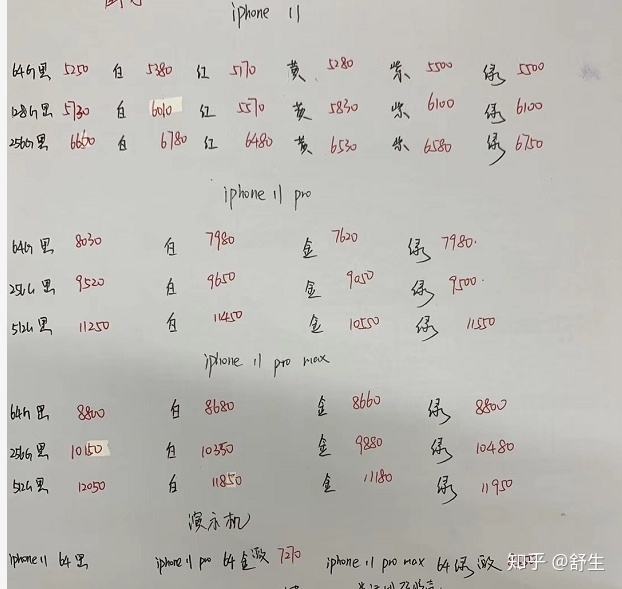 iphone 11
64G黑 5250 白 5380 红 5170 黄 5280 紫 5500 绿 5500
128G黑 5730 白 6010 红 5570 黄 5830 紫 6100 绿 6100
256G黑 6660 白 6780 红 6480 黄 6530 紫 6580 绿 6750
iphone 11 pro
64G黑 8030 白 7980 金 7620 绿 7980.
256G黑 9520 白 9650 金 9050 绿 9500.
512G黑 11250 白 11450 金 10550 绿 11550
iphone 11 pro max
64G黑 8800 白 8680 金 8660 绿 8800
256G黑 10150 白 10350 金 9880 绿 10480
512G黑 12050 白 11850 金 11180 绿 11950
演示机
iphone 11 64黑 iphone 11 pro 64金 7270 iphone 11 pro max 64绿
知乎 @舒生